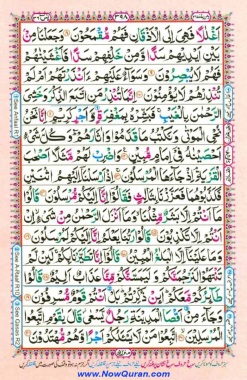 ٣٩٨
اَغْلٰلًا فَهِىَ اِلَى الْاَذْقَانِ فَهُمْ مُّقْمَحُوْنَ وَجَعَلْنَا مِنْۢ
بَيْنِ اَيْدِيْهِمْ سَدًّا وَّمِنْ خَلْفِهِمْ سَدًّا فَاَغْشَيْنٰهُمْ
فَهُمْ لَا يُبْصِرُوْنَ وَسَوَآءٌ عَلَيْهِمْ ءَاَنْذَرْتَهُمْ اَمْ لَمْ
تُنْذِرْهُمْ لَا يُؤْمِنُوْنَ اِنَّمَا تُنْذِرُ مَنِ اتَّبَعَ الذِّكْرَ وَخَشِىَ
الرَّحْمٰنَ بِالْغَيْبِ فَبَشِّرْهُ بِمَغْفِرَةٍ وَّاَجْرٍ كَرِيْمٍ اِنَّا نَحْنُ
نُحْىِ الْمَوْتٰى وَنَكْتُبُ مَا قَدَّمُوْا وَاٰثَارَهُمْ وَكُلَّ شَىْءٍ
اَحْصَيْنٰهُ فِىْٓ اِمَامٍ مُّبِيْنٍ وَاضْرِبْ لَهُمْ مَّثَلًا اَصْحٰبَ
الْقَرْيَةِ اِذْ جَآءَهَا الْمُرْسَلُوْنَ اِذْ اَرْسَلْنَآ اِلَيْهِمُ اثْنَيْنِ
فَكَذَّبُوْهُمَا فَعَزَّزْنَا بِثَالِثٍ فَقَالُوْٓا اِنَّآ اِلَيْكُمْ مُّرْسَلُوْنَ قَالُوْا
مَآ اَنْتُمْ اِلَّا بَشَرٌ مِّثْلُنَا وَمَآ اَنْزَلَ الرَّحْمٰنُ مِنْ شَىْءٍ اِنْ
اَنْتُمْ اِلَّا تَكْذِبُوْنَ قَالُوْا رَبُّنَا يَعْلَمُ اِنَّآ اِلَيْكُمْ لَمُرْسَلُوْنَ
وَمَا عَلَيْنَآ اِلَّا الْبَلٰغُ الْمُبِيْنُ قَالُوْٓا اِنَّا تَطَيَّرْنَا بِكُمْ لَئِنْ لَّمْ
تَنْتَهُوْا لَنَرْجُمَنَّكُمْ وَلَيَمَسَّنَّكُمْ مِّنَّا عَذَابٌ اَلِيْمٌ قَالُوْا
طَآئِرُكُمْ مَّعَكُمْ اَئِنْ ذُكِّرْتُمْ بَلْ اَنْتُمْ قَوْمٌ مُّسْرِفُوْنَ
وَجَآءَ مِنْ اَقْصَا الْمَدِيْنَةِ رَجُلٌ يَّسْعٰى قَالَ يٰقَوْمِ اتَّبِعُوا
الْمُرْسَلِيْنَ اتَّبِعُوْا مَنْ لَّا يَسْئَلُكُمْ اَجْرًا وَّهُمْ مُّهْتَدُوْنَ
www.NowQuran.com